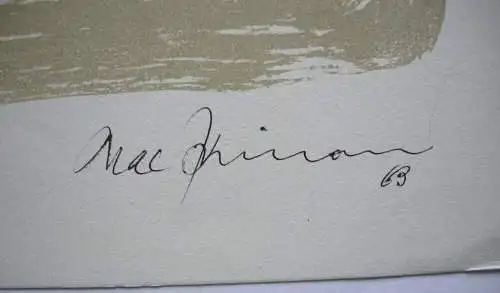 Mac Zimmerman
69